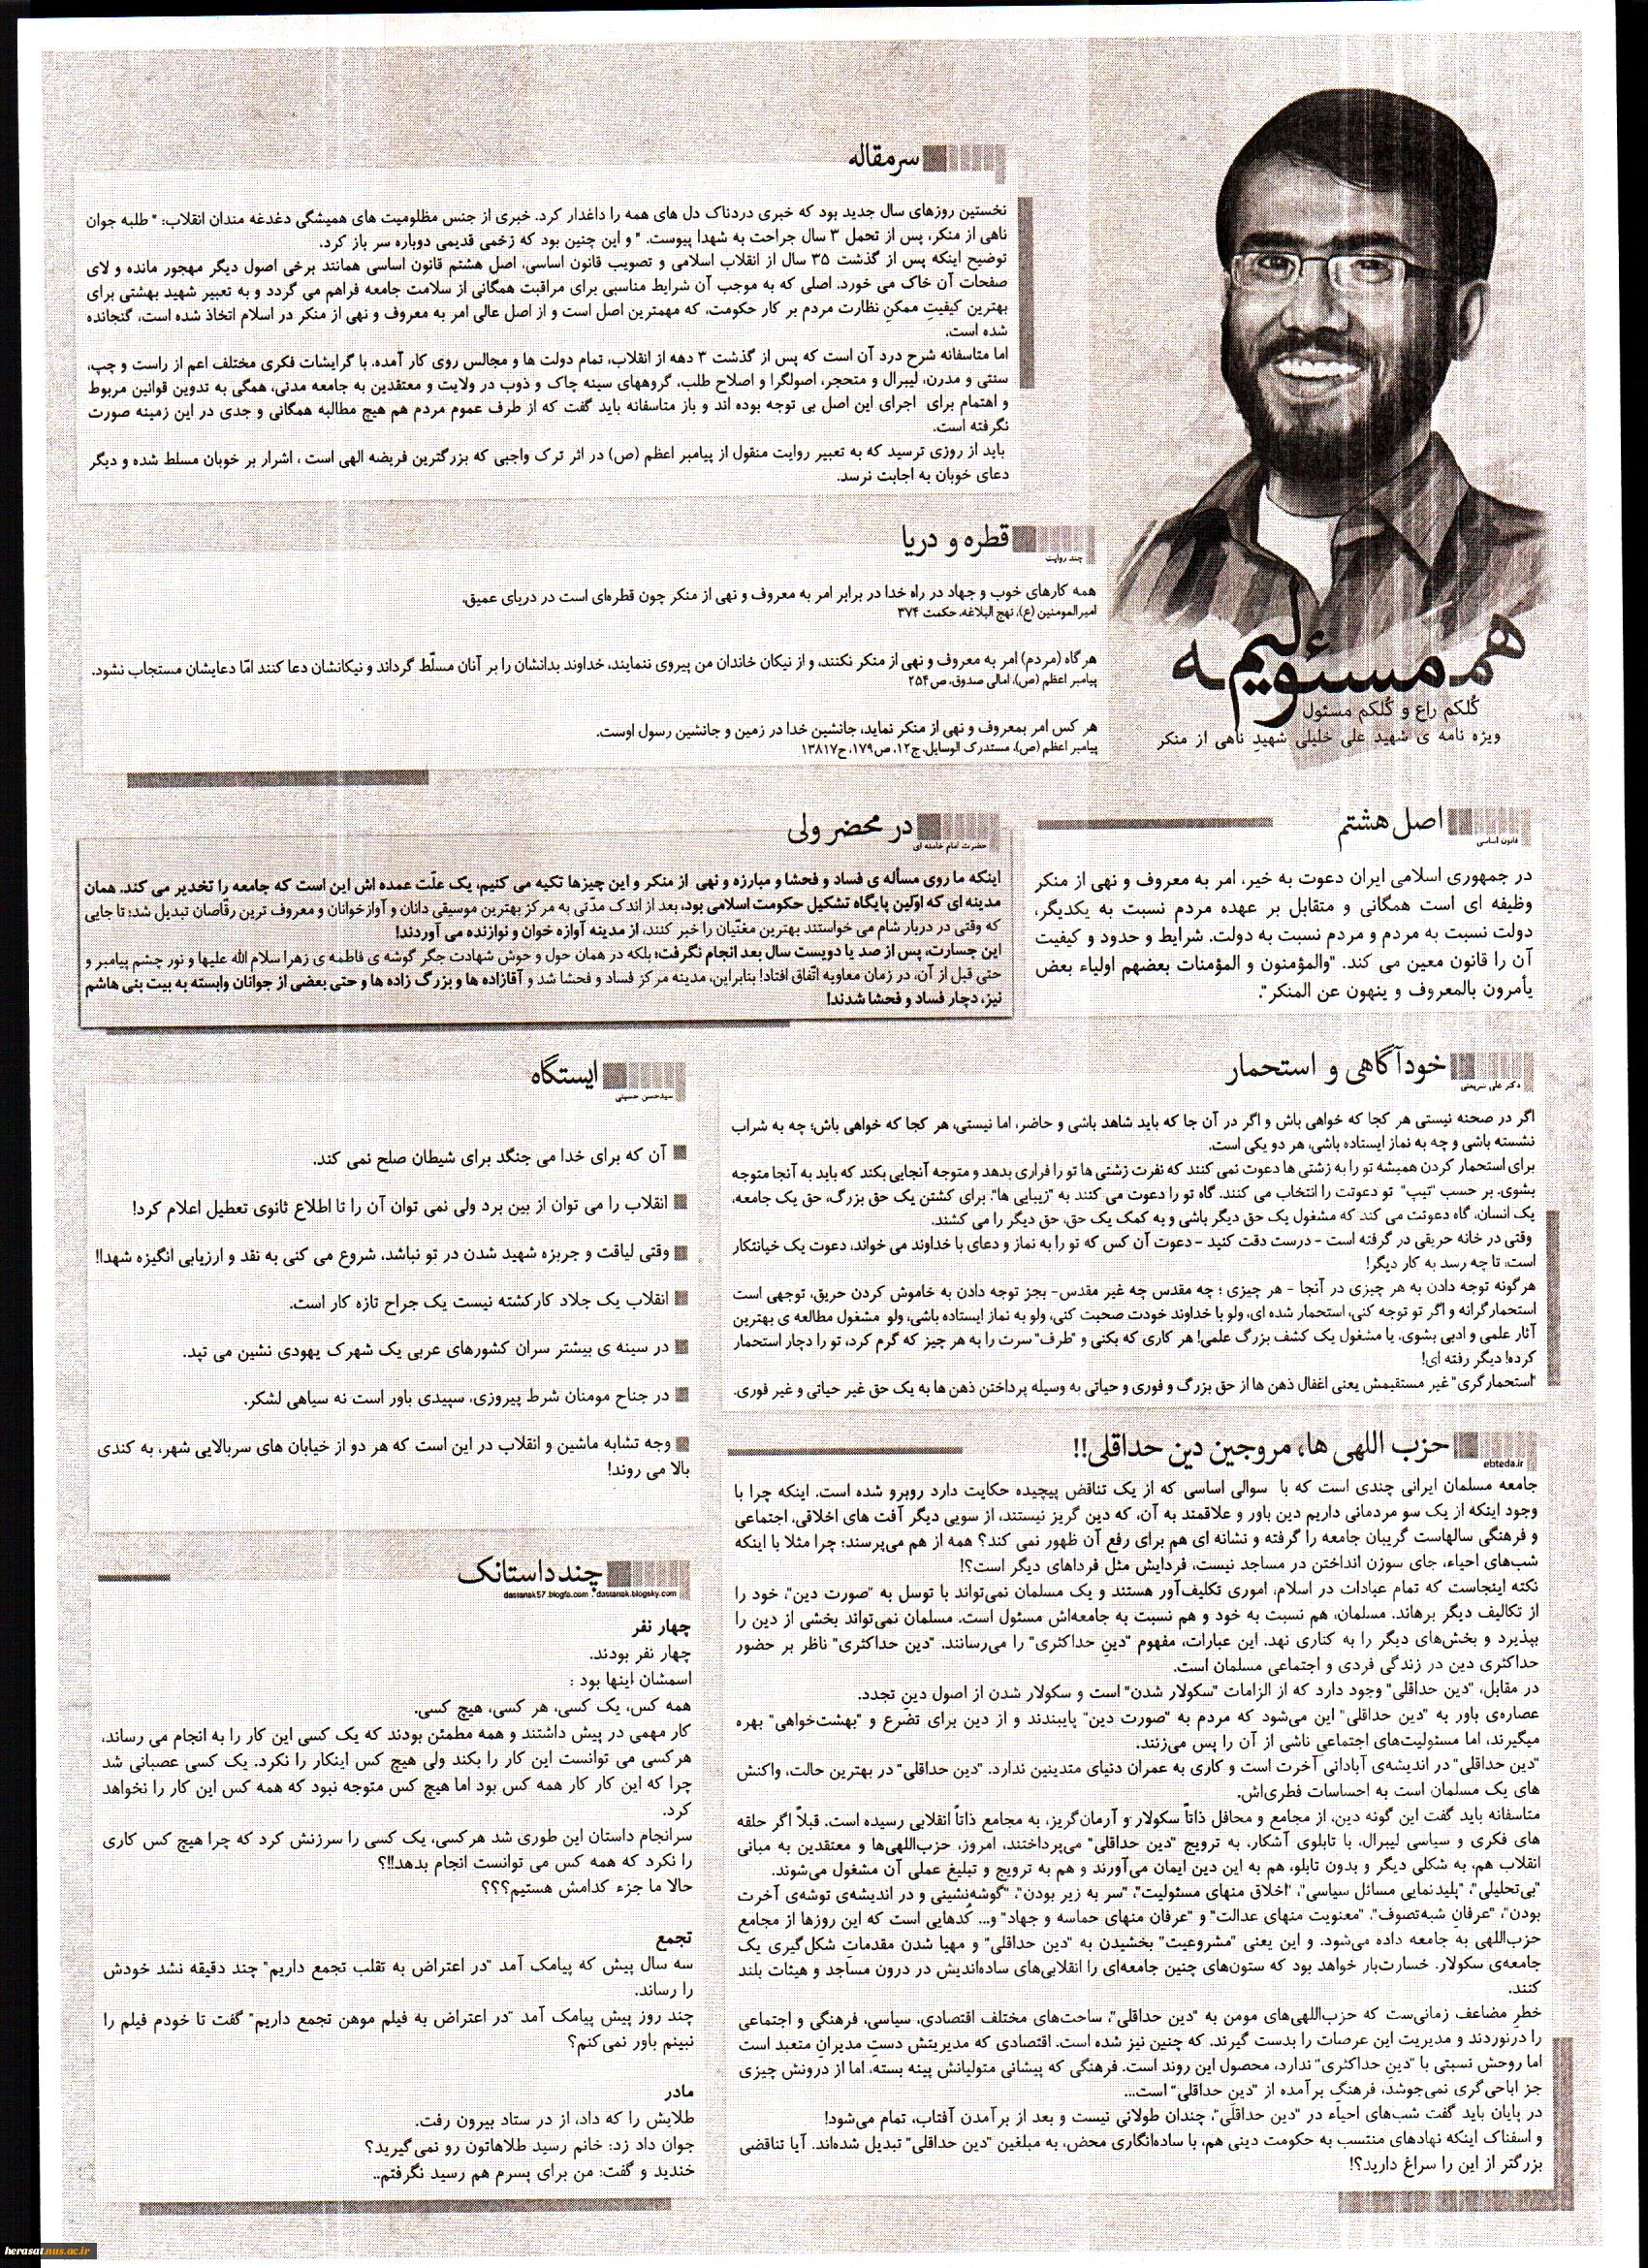 سرمقاله
نخستین روزهای سال جدید بود که خبری دردناک دل های همه را داغدار کرد. خبری از جنس مظلومیت های همیشگی دغدغه مندان انقلاب: " طلبه جوان
ناهی از منکر، پس از تحمل ۳ سال جراحت به شهدا پیوست. " و این چنین بود که زخمی قدیمی دوباره سر باز کرد.
توضیح اینکه پس از گذشت ۳۵ سال از انقلاب اسلامی و تصویب قانون اساسی، اصل هشتم قانون اساسی همانند برخی اصول دیگر مهجور مانده و لای
صفحات آن خاک می خورد. اصلی که به موجب آن شرایط مناسبی برای مراقبت همگانی از سلامت جامعه فراهم می گردد و به تعبیر شهید بهشتی برای
بهترین کیفیتِ ممکنِ نظارت مردم بر کار حکومت، که مهمترین اصل است و از اصل عالی امر به معروف و نهی از منکر در اسلام اتخاذ شده است، گنجانده
شده است.
اما متاسفانه شرح درد آن است که پس از گذشت ۳ دهه از انقلاب، تمام دولت ها و مجالس روی کار آمده، با گرایشات فکری مختلف اعم از راست و چپ،
سنتی و مدرن، لیبرال و متحجر، اصولگرا و اصلاح طلب، گروههای سینه چاک و ذوب در ولایت و معتقدین به جامعه مدنی، همگی به تدوین قوانین مربوط
و اهتمام برای اجرای این اصل بی توجه بوده اند و باز متاسفانه باید گفت که از طرف عموم مردم هم هیچ مطالبه همگانی و جدی در این زمینه صورت
نگرفته است.
باید از روزی ترسید که به تعبیر روایت منقول از پیامبر اعظم (ص) در اثر ترک واجبی که بزرگترین فریضه الهی است ، اشرار بر خوبان مسلط شده و دیگر
دعای خوبان به اجابت نرسد.
قطره و دریا
چند روایت
همه کارهای خوب و جهاد در راه خدا در برابر امر به معروف و نهی از منکر چون قطره‌ای است در دریای عمیق.
امیرالمومنین (ع)، نهج البلاغه، حکمت ۳۷۴
هرگاه (مردم) امر به معروف و نهی از منکر نکنند، و از نیکان خاندان من پیروی ننمایند، خداوند بدانشان را بر آنان مسلّط گرداند و نیکانشان دعا کنند امّا دعایشان مستجاب نشود.
پیامبر اعظم (ص)، امالی صدوق، ص۲۵۴
هر کس امر بمعروف و نهی از منکر نماید، جانشین خدا در زمین و جانشین رسول اوست.
پیامبر اعظم (ص)، مستدرک الوسایل، ج۱۲، ص۱۷۹، ح۱۳۸۱۷
همه مسئولیم
کُلکم راع و کُلکم مسئول
ویژه نامه ی شهید علی خلیلی شهیدِ ناهی از منکر
اصل هشتم
قانون اساسی
در جمهوری اسلامی ایران دعوت به خیر، امر به معروف و نهی از منکر
وظیفه ای است همگانی و متقابل بر عهده مردم نسبت به یکدیگر،
دولت نسبت به مردم و مردم نسبت به دولت. شرایط و حدود و کیفیت
آن را قانون معین می کند. "والمؤمنون و المؤمنات بعضهم اولیاء بعض
یأمرون بالمعروف و ینهون عن المنکر".
در محضر ولی
حضرت امام خامنه ای
اینکه ما روی مسأله ی فساد و فحشا و مبارزه و نهی از منکر و این چیزها تکیه می کنیم، یک علّت عمده اش این است که جامعه را تخدیر می کند. همان
مدینه ای که اوّلین پایگاه تشکیل حکومت اسلامی بود، بعد از اندک مدّتی به مرکز بهترین موسیقی دانان و آوازخوانان و معروف ترین رقّاصان تبدیل شد؛ تا جایی
که وقتی در دربار شام می خواستند بهترین مغنّیان را خبر کنند، از مدینه آوازه خوان و نوازنده می آوردند!
این جسارت، پس از صد یا دویست سال بعد انجام نگرفت؛ بلکه در همان حول و حوش شهادت جگر گوشه ی فاطمه ی زهرا سلام الله علیها و نور چشم پیامبر و
حتی قبل از آن، در زمان معاویه اتّفاق افتاد! بنابراین، مدینه مرکز فساد و فحشا شد و آقازاده ها و بزرگ زاده ها و حتی بعضی از جوانان وابسته به بیت بنی هاشم
نیز، دچار فساد و فحشا شدند!
خودآگاهی و استحمار
دکتر علی شریعتی
اگر در صحنه نیستی هر کجا که خواهی باش و اگر در آن جا که باید شاهد باشی و حاضر، اما نیستی، هر کجا که خواهی باش؛ چه به شراب
نشسته باشی و چه به نماز ایستاده باشی، هر دو یکی است.
برای استحمار کردن همیشه تو را به زشتی ها دعوت نمی کنند که نفرت زشتی ها تو را فراری بدهد و متوجه آنجایی بکند که باید به آنجا متوجه
بشوی. بر حسب "تیپ" تو دعوتت را انتخاب می کنند. گاه تو را دعوت می کنند به "زیبایی ها". برای کشتن یک حق بزرگ، حق یک جامعه،
یک انسان، گاه دعوتت می کند که مشغول یک حق دیگر باشی و به کمک یک حق، حق دیگر را می کشند.
وقتی در خانه حریقی در گرفته است - درست دقت کنید - دعوت آن کس که تو را به نماز و دعای با خداوند می خواند، دعوت یک خیانتکار
است، تا چه رسد به کار دیگر!
هرگونه توجه دادن به هر چیزی در آنجا - هر چیزی ؛ چه مقدس چه غیر مقدس- بجز توجه دادن به خاموش کردن حریق، توجهی است
استحمارگرانه و اگر تو توجه کنی، استحمار شده ای، ولو با خداوند خودت صحبت کنی، ولو به نماز ایستاده باشی، ولو مشغول مطالعه ی بهترین
آثار علمی و ادبی بشوی، یا مشغول یک کشف بزرگ علمی! هر کاری که بکنی و "طرف" سرت را به هر چیز که گرم کرد، تو را دچار استحمار
کرده! دیگر رفته ای!
"استحمارگری" غیر مستقیمش یعنی اغفال ذهن ها از حق بزرگ و فوری و حیاتی به وسیله پرداختن ذهن ها به یک حق غیر حیاتی و غیر فوری.
ایستگاه
سیدحسن حسینی
آن که برای خدا می جنگد برای شیطان صلح نمی کند.
انقلاب را می توان از بین برد ولی نمی توان آن را تا اطلاع ثانوی تعطیل اعلام کرد!
وقتی لیاقت و جربزه شهید شدن در تو نباشد، شروع می کنی به نقد و ارزیابی انگیزه شهدا!!
انقلاب یک جلاد کارکشته نیست یک جراح تازه کار است.
در سینه ی بیشتر سران کشورهای عربی یک شهرک یهودی نشین می تپد.
در جناح مومنان شرط پیروزی، سپیدی باور است نه سیاهی لشکر.
وجه تشابه ماشین و انقلاب در این است که هر دو از خیابان های سربالایی شهر، به کندی
بالا می روند!
حزب اللهی ها، مروجین دین حداقلی!!
ebteda.ir
جامعه مسلمان ایرانی چندی است که با سوالی اساسی که از یک تناقض پیچیده حکایت دارد روبرو شده است. اینکه چرا با
وجود اینکه از یک سو مردمانی داریم دین باور و علاقمند به آن، که دین گریز نیستند، از سویی دیگر آفت های اخلاقی، اجتماعی
و فرهنگی سالهاست گریبان جامعه را گرفته و نشانه ای هم برای رفع آن ظهور نمی کند؟ همه از هم می‌پرسند: چرا مثلا با اینکه
شب‌های احیاء، جای سوزن انداختن در مساجد نیست، فردایش مثل فرداهای دیگر است؟!
نکته اینجاست که تمام عبادات در اسلام، اموری تکلیف‌آور هستند و یک مسلمان نمی‌تواند با توسل به "صورت دین"، خود را
از تکالیف دیگر برهاند. مسلمان، هم نسبت به خود و هم نسبت به جامعه‌اش مسئول است. مسلمان نمی‌تواند بخشی از دین را
بپذیرد و بخش‌های دیگر را به کناری نهد. این عبارات، مفهوم "دینِ حداکثری" را می‌رسانند. "دین حداکثری" ناظر بر حضور
حداکثری دین در زندگی فردی و اجتماعی مسلمان است.
در مقابل، "دین حداقلی" وجود دارد که از الزامات "سکولار شدن" است و سکولار شدن از اصول دینِ تجدد.
عصاره‌ی باور به "دین حداقلی" این می‌شود که مردم به "صورت دین" پایبندند و از دین برای تضرع و "بهشت‌خواهی" بهره
میگیرند، اما مسئولیت‌های اجتماعی ناشی از آن را پس می‌زنند.
"دین حداقلی" در اندیشه‌ی آبادانی آخرت است و کاری به عمران دنیای متدینین ندارد. "دین حداقلی" در بهترین حالت، واکنش
های یک مسلمان است به احساسات فطری‌اش.
متاسفانه باید گفت این گونه دین، از مجامع و محافل ذاتاً سکولار و آرمان‌گریز، به مجامع ذاتاً انقلابی رسیده است. قبلاً اگر حلقه
های فکری و سیاسی لیبرال، با تابلوی آشکار، به ترویج "دین حداقلی" می‌پرداختند، امروز، حزب‌اللهی‌ها و معتقدین به مبانی
انقلاب هم، به شکلی دیگر و بدون تابلو، هم به این دین ایمان می‌آورند و هم به ترویج و تبلیغ عملی آن مشغول می‌شوند.
"بی‌تحلیلی"، "پلیدنمایی مسائل سیاسی"، "اخلاق منهای مسئولیت"، "سر به زیر بودن"، "گوشه‌نشینی و در اندیشه‌ی توشه‌ی آخرت
بودن"، "عرفان شبه‌تصوف"، "معنویت منهای عدالت" و "عرفان منهای حماسه و جهاد" و... کُدهایی است که این روزها از مجامع
حزب‌اللهی به جامعه داده می‌شود. و این یعنی "مشروعیت" بخشیدن به "دین حداقلی" و مهیا شدن مقدماتِ شکل‌گیری یک
جامعه‌ی سکولار. خسارت‌بار خواهد بود که ستون‌های چنین جامعه‌ای را انقلابی‌های ساده‌اندیش در درون مساجد و هیئات بلند
کنند.
خطر مضاعف زمانی‌ست که حزب‌اللهی‌های مومن به "دین حداقلی"، ساحت‌های مختلف اقتصادی، سیاسی، فرهنگی و اجتماعی
را درنوردند و مدیریت این عرصات را بدست گیرند. که چنین نیز شده است. اقتصادی که مدیریتش دستِ مدیرانِ متعبد است
اما روحش نسبتی با "دینِ حداکثری" ندارد، محصول این روند است. فرهنگی که پیشانی متولیانش پینه بسته، اما از درونش چیزی
جز اباحی‌گری نمی‌جوشد، فرهنگِ برآمده از "دینِ حداقلی" است...
در پایان باید گفت شب‌های احیاء در "دین حداقلی"، چندان طولانی نیست و بعد از برآمدن آفتاب، تمام می‌شود!
و اسفناک اینکه نهادهای منتسب به حکومت دینی هم، با ساده‌انگاری محض، به مبلغین "دین حداقلی" تبدیل شده‌اند. آیا تناقضی
بزرگتر از این را سراغ دارید؟!
چند داستانک
dastanak57.blogfa.com * dastanak.blogsky.com
چهار نفر
چهار نفر بودند.
اسمشان اینها بود :
همه کس، یک کسی، هر کسی، هیچ کسی.
کار مهمی در پیش داشتند و همه مطمئن بودند که یک کسی این کار را به انجام می رساند،
هرکسی می توانست این کار را بکند ولی هیچ کس اینکار را نکرد. یک کسی عصبانی شد
چرا که این کار کار همه کس بود اما هیچ کس متوجه نبود که همه کس این کار را نخواهد
کرد.
سرانجام داستان این طوری شد هرکسی، یک کسی را سرزنش کرد که چرا هیچ کس کاری
را نکرد که همه کس می توانست انجام بدهد!!؟
حالا ما جزء کدامش هستیم؟؟؟
تجمع
سه سال پیش که پیامک آمد "در اعتراض به تقلب تجمع داریم" چند دقیقه نشد خودش
را رساند.
چند روز پیش پیامک آمد "در اعتراض به فیلم موهن تجمع داریم" گفت تا خودم فیلم را
نبینم باور نمی‌کنم؟
مادر
طلایش را که داد، از در ستاد بیرون رفت.
جوان داد زد: خانم رسید طلاهاتون رو نمی‌گیرید؟
خندید و گفت: من برای پسرم هم رسید نگرفتم..
herasat.nus.ac.ir